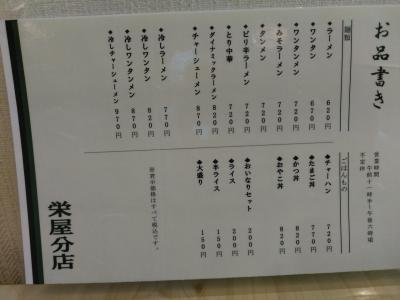 お品書き
営業時間
午前十一時半～午後六時頃
不定休
麺類
◆ラーメン 620円
◆ワンタン 670円
◆ワンタンメン 720円
◆みそラーメン 720円
◆タンメン 720円
◆ピリ辛ラーメン 720円
◆とり中華 720円
◆ダイナミックラーメン 820円
◆チャーシューメン 870円
◆冷しラーメン 770円
◆冷しワンタン 820円
◆冷しワンタンメン 870円
◆冷しチャーシューメン 970円
ごはんもの
◆チャーハン 720円
◆たまご丼 770円
◆かつ丼 820円
◆おやこ丼 820円
◆おいなりセット 200円
◆ライス 200円
◆半ライス 150円
◆大盛り 150円
※表中価格はすべて税込です。
栄屋分店